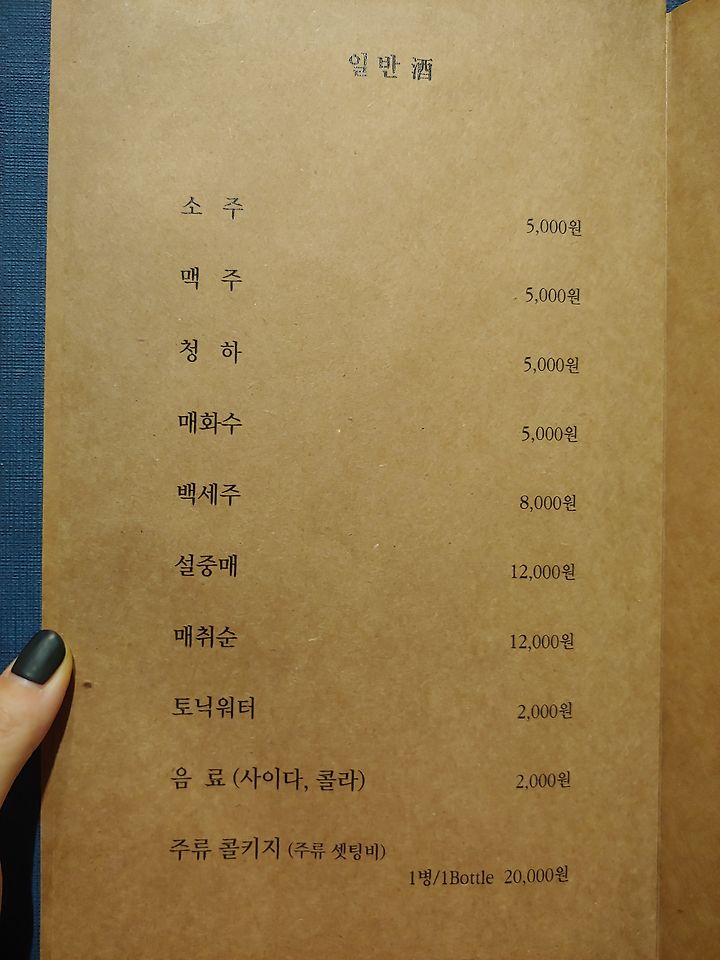 일반酒
소 주 5,000원
맥 주 5,000원
청 하 5,000원
매화수 5,000원
백세주 8,000원
설중매 12,000원
매취순 12,000원
토닉워터 2,000원
음 료 (사이다, 콜라) 2,000원
주류 콜키지 (주류 셋팅비)
1병/1Bottle 20,000원